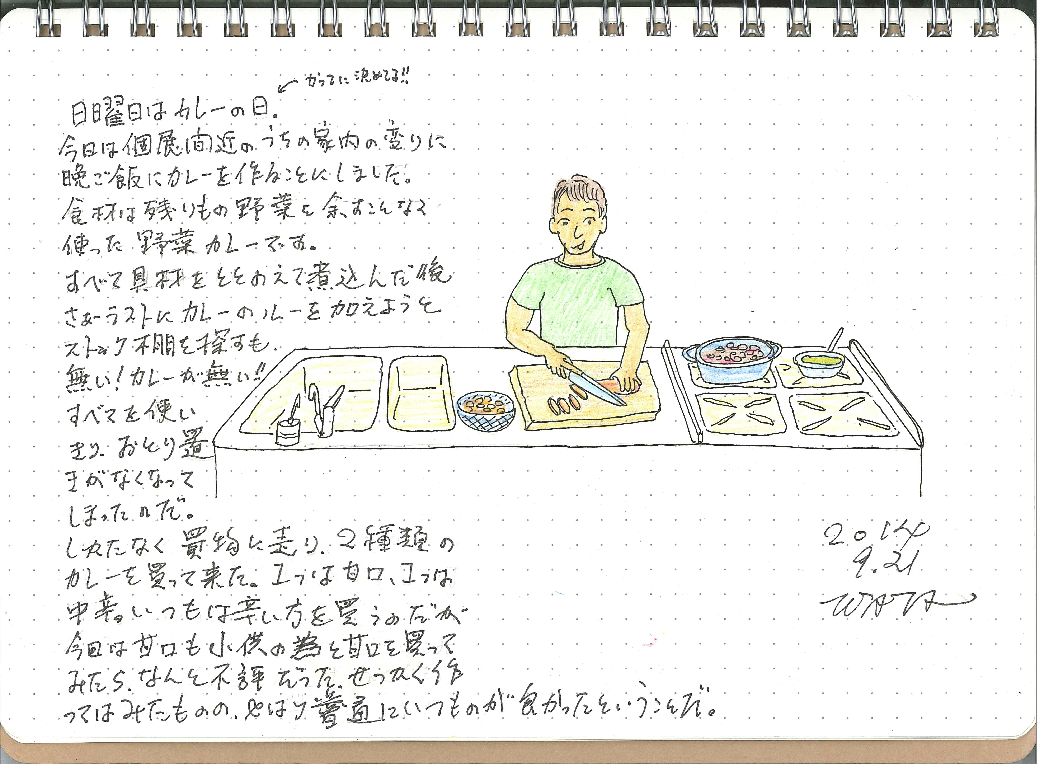 かってに決めてる!!
日曜日はカレーの日。
今日は個展間近のうちの家内の変りに
晩ご飯にカレーを作ることにしました。
食材は残りもの野菜を余すことなく
使った野菜カレーです。
すべて具材をととのえて煮込んだ後
さぁーラストにカレーのルーを加えようと
ストック棚を探すも、
無い!カレーが無い!!
すべてを使い
きり、おとり置
きがなくなって
しまったのだ。
しかたなく買物に走り、2種類の
カレーを買って来た。1つは甘口、1つは
中辛。いつもは辛い方を買うのだが
今回は甘口も小供の為と甘口を買って
みたら、なんと不評だった。せっかく作
ってはみたものの、やはり普通にいつものが良かったということだ。
2014
9.21
WATA